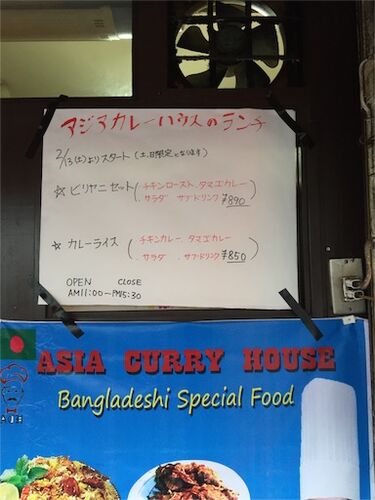 アジアカレーハウスのランチ
2/13(土)よりスタート(土、日限定となります)
☆ ビリヤニセット(チキンロースト、タマゴカレー
サラダ 、サフ・ドリンク ¥890)
☆ カレーライス(チキンカレー、タマゴカレー
サラダ 、サフ・ドリンク ¥850)
OPEN CLOSE
AM11:00〜PM15:30
ASIA CURRY HOUSE
Bangladeshi Special Food